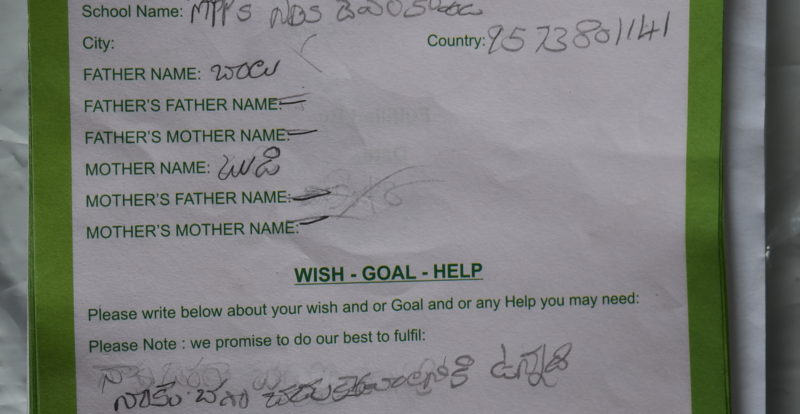 School Name: MPPS
City:
Country: 9573801141
FATHER NAME: బాలు
FATHER'S FATHER NAME:
FATHER'S MOTHER NAME:
MOTHER NAME: బుడి
MOTHER'S FATHER NAME:
MOTHER'S MOTHER NAME:
WISH - GOAL - HELP
Please write below about your wish and or Goal and or any Help you may need:
Please Note : we promise to do our best to fulfil:
నాకు బాగా ఉన్నది